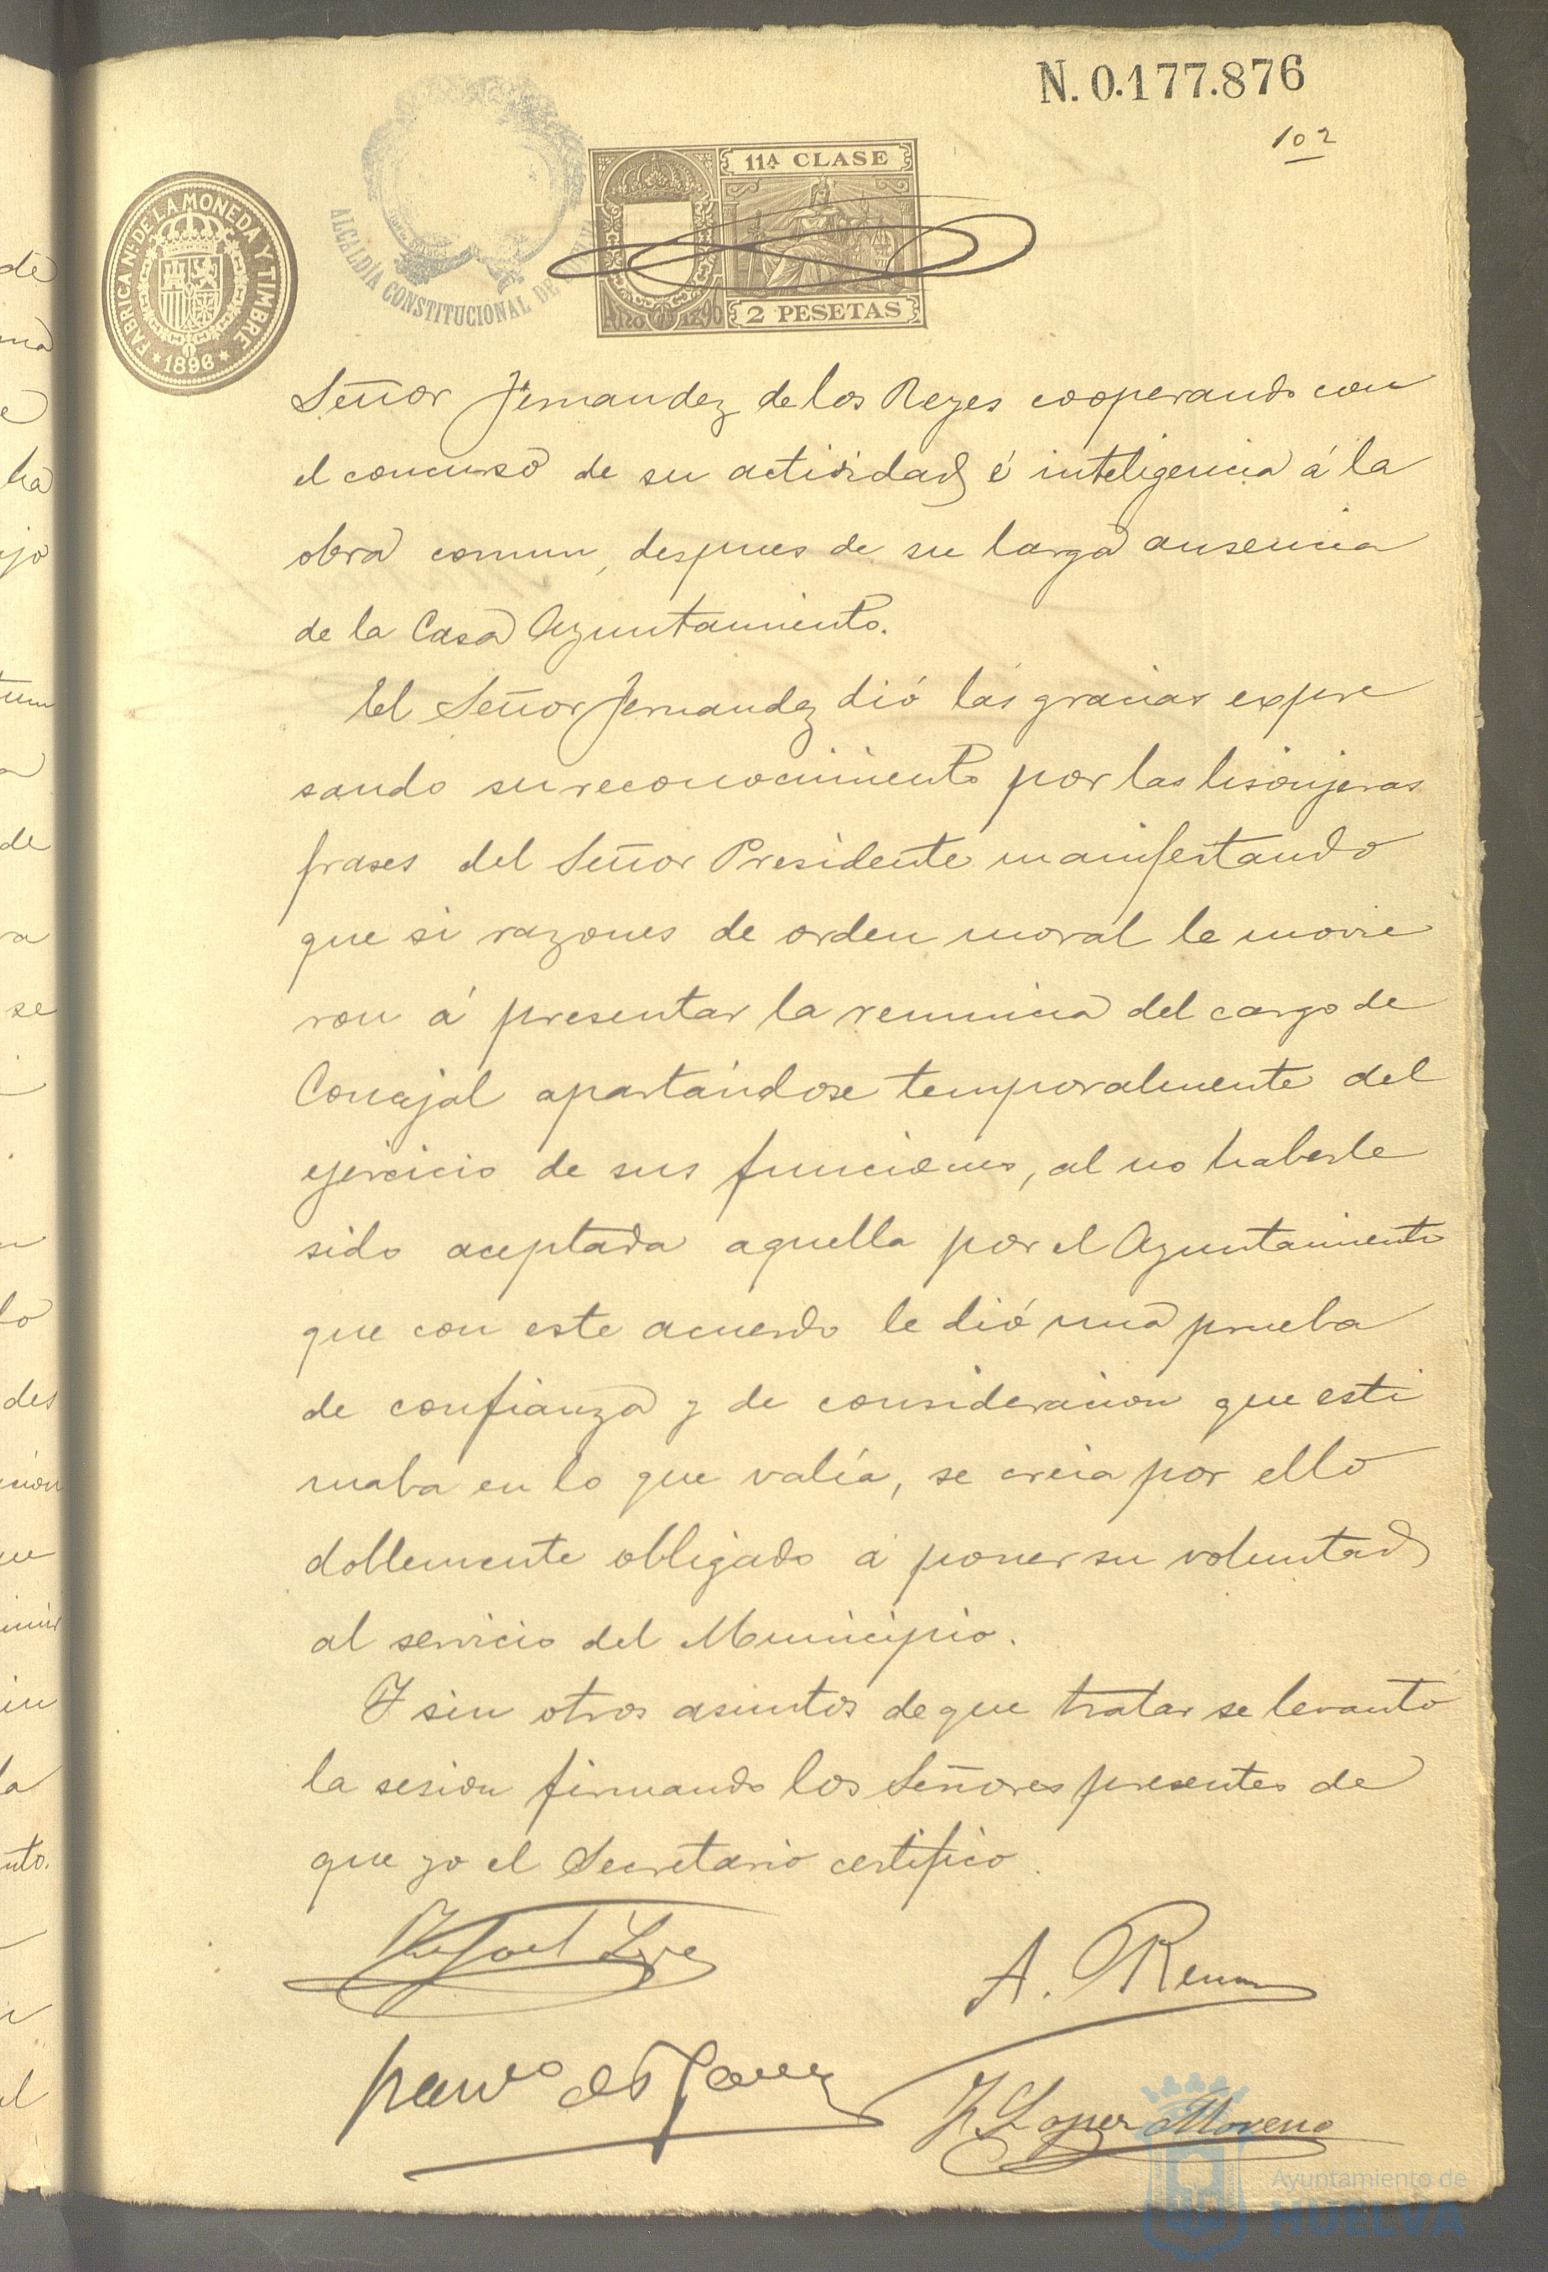 N. 0.177.876
102
11ª CLASE
2 PESETAS
FABRICA Nˡ DE LA MONEDA Y TIMBRE
* 1896 *
ALCALDÍA CONSTITUCIONAL DE
Señor Fernandez de los Reyes cooperando con
el concurso de su actividad é inteligencia á la
obra comun, despues de su larga ausencia
de la Casa Ayuntamiento.
El Señor Fernandez dió las gracias expre
sando su reconocimiento por las lisonjeras
frases del Señor Presidente manifestando
que si razones de orden moral le movie
ron á presentar la renuncia del cargo de
Concejal apartándose temporalmente del
ejercicio de sus funciones, al no haberle
sido aceptada aquella por el Ayuntamiento
que con este acuerdo le dió una prueba
de confianza y de consideracion que esti
maba en lo que valía, se creia por ello
doblemente obligado á poner su voluntad
al servicio del Municipio.
Y sin otros asuntos de que tratar se levantó
la sesion firmando los Señores presentes de
que yo el Secretario certifico.
A.
Lopez Moreno
Ayuntamiento de
HUELVA